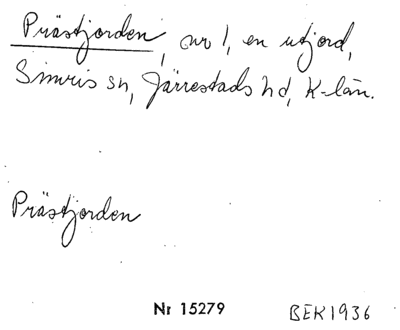 Prästjorden, nr 1, en utjord,
Simris sn, Järrestads hd, K-län.
Prästjorden
Nr 15279 BEK1936